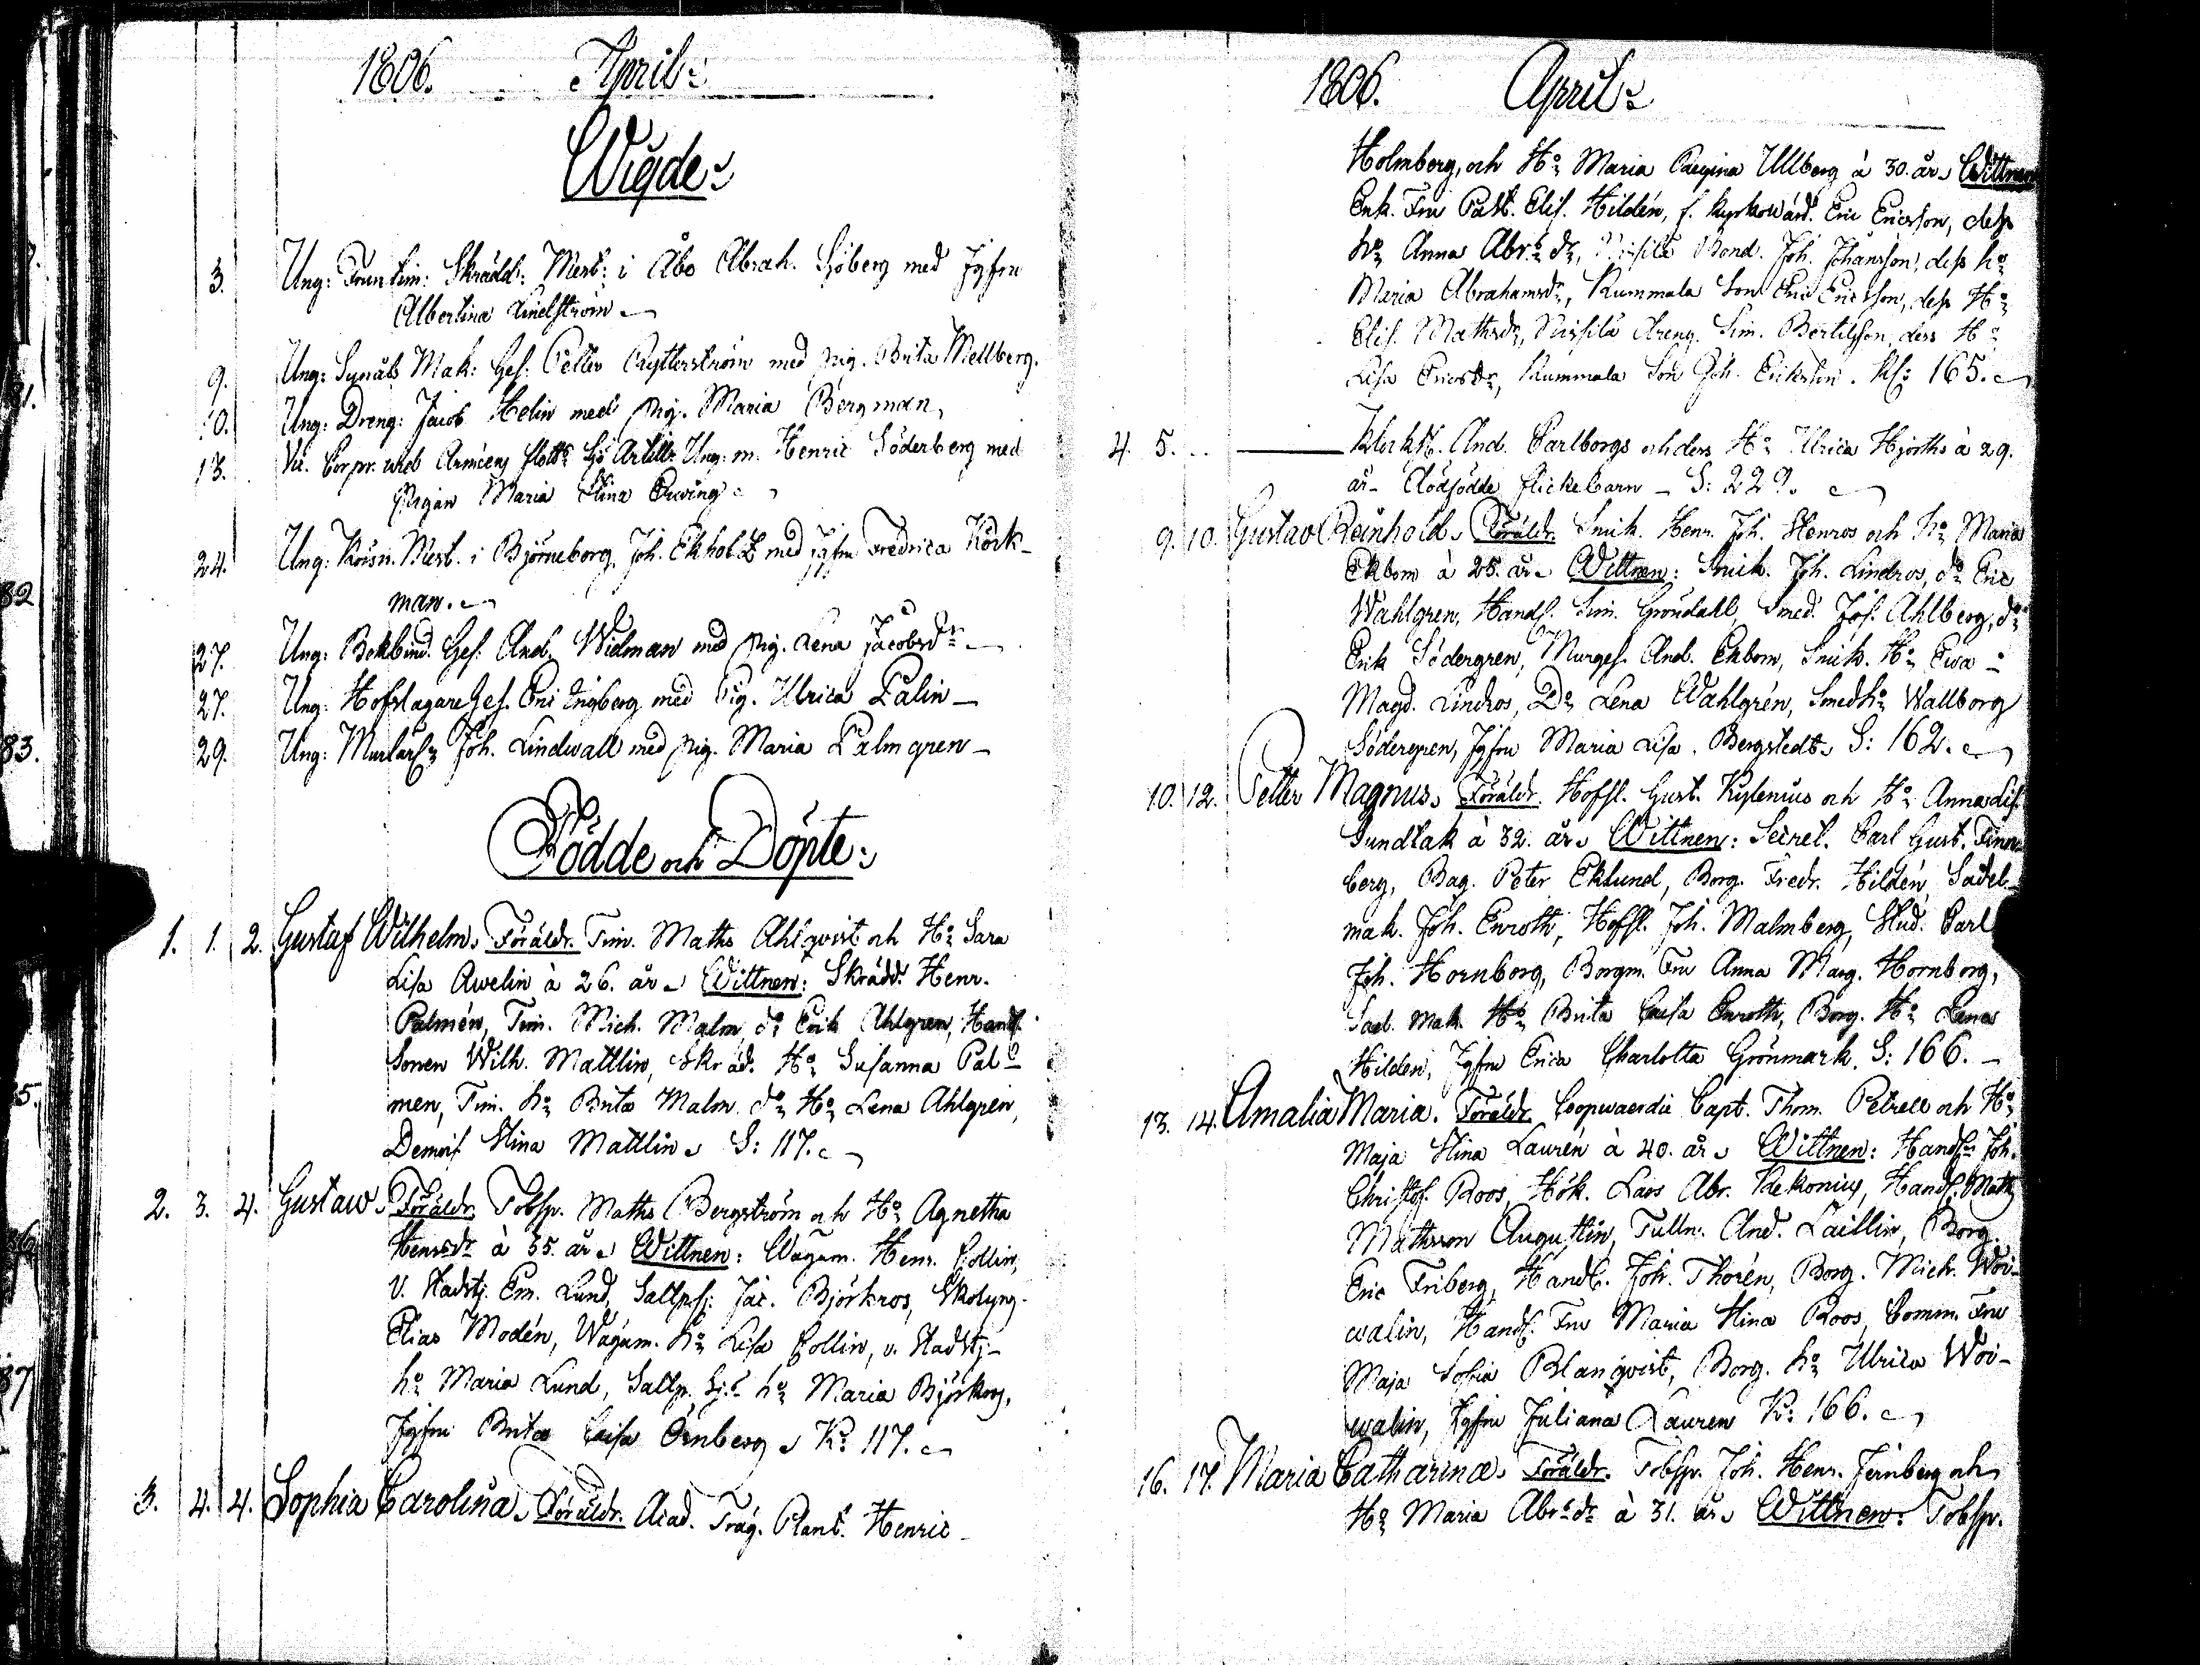 1806. April:
Wigde:
3. Ung: Skrädd: Mest: i Åbo Abrah. Sjöberg med Jgfru
Albertina Lindström
9. Ung: Mak: Ges: Petter med pig. Brita Mellberg.
10. Ung: Dreng: Jacob Helin med pig. Maria Bergman,
13. Vic. Corpr. wid Armeens flotts Artill: Ung: m. Henric Söderberg med
Pigan Maria Stina
24. Ung: Mest. i Björneborg, Joh. Ekholm med jgfru Fredrica Körk-
man.
27. Ung: Bokbind. Ges. And. Widman med pig. Lena Jacobsdr
27. Ung: Hofslagare Ges. Eric Engberg med Pig. Ulrica Palin
29. Ung: Joh. Lindwall med pig. Maria Palmgren
Födde och Döpte:
1. 1. 2. Gustaf Wilhelm, Föräldr. Tim. Maths Ahlqvist och Ho Sara
Lisa Awelin à 26. år Wittnen: Skrädd. Henr.
Palmén, Tim. Mich. Malm, do Erik Ahlgren, Handl.
Sonen Wilh. Mattlin, Skräd. Ho Susanna Pal-
men, Tim. ho Brita Malm, do Ho Lena Ahlgren,
Demois. Stina Mattlin, S: 117.
2. 3. 4. Gustaw, Föräldr. Tobsp. Maths Bergström och Ho Agnetha
Henrsdr à 35. år Wittnen: Wägam. Henr. Collin,
V. Stadstj. Em. Lund, Saltp.sj: Jac. Björkros, Skolyng.
Elias Modén, Wägam. ho Lisa Collin, v. Stadstj.
ho Maria Lund, Saltp. sj: ho Maria Björkros,
Jgfru Brita Caisa Örnberg, K: 117.
3. 4. 4. Sophia Carolina, Föräldr. Acad. Träg. Plant. Henric
1806. April:
Holmberg, och Ho Maria Regina Ullberg à 30. år, Wittnen
Enk. Fru Past. Elis. Hildén, f. kyrkowärd. Eric Ericsson, dess
ho Anna Abr. dr, Bond. Joh. Johansson, dess ho
Maria Abrahamsdr, Kummala Son Eric Ericsson, dess Ho
Elis. Mathsdr, dreng. Sim. Bertilsson, dess Ho
Lisa Ericsdr, Kummala Son Joh. Eriksson. Kl: 165.
4. 5. And. Carlborgs och dess Ho Ulrica Hjorths à 29.
år dödfödde flickebarn S: 229.
9. 10. Gustav Reinhold, Föräldr. Snick. Henr. Joh. Stenros och ho Maria
Ekbom à 25. år Wittnen: Snick. Joh. Lindros, do Eric
Wahlgren, Handl. Sim. Gröndahl, Smed. Jos. Ahlberg, do
Erik Södergren, Murges. And. Ekbom, Snick. Ho Ewa
Magd. Lindros, Do Lena Wahlgrén, Smedho Wallborg
Södergren, Jgfru Maria Lisa Bergstedt, S: 162.
10. 12. Petter Magnus, Föräldr. Hofsl. Gust. Kylenius och Ho Anna Lis.
Sundlak à 32. år, Wittnen: Secret. Carl Gust. Finne-
berg, Bag. Peter Eklund, Borg. Fredr. Hildén, Sadel-
mak. Joh. Enroth, Hofsl. Joh. Malmberg, Stud. Carl
Joh. Hornborg, Borgm. Fru Anna Marg. Hornborg,
Sad. mak. Ho Brita Caisa Enroth, Borg. Ho Lena
Hilden, Jgfru Erica Charlotta Grönmark, S: 166.
13. 14. Amalia Maria. Föräldr. Coopvaerdie Capt. Thom. Petrell och Ho
Maja Stina Laurén à 40. år, Wittnen: Handl. Joh.
Christof. Roos, Hök. Lars Abr. Kekonius, Handl. Maths
Mathsson Augustin, Tulln. And. Laillin, Borg.
Eric Friberg, Handl. Joh. Thorén, Borg. Mich. Woi-
walin, Handl. Fru Maria Stina Roos, Comm. Fru
Maja Sofia Blanqvist, Borg. ho Ulrica Woi-
walin, Jgfru Juliana Lauren K: 166.
16. 17. Maria Catharina, Föräldr. Tobsp. Joh. Henr. Jernberg och
Ho Maria Abr.dr à 31. år, Wittnen: Tobsp.